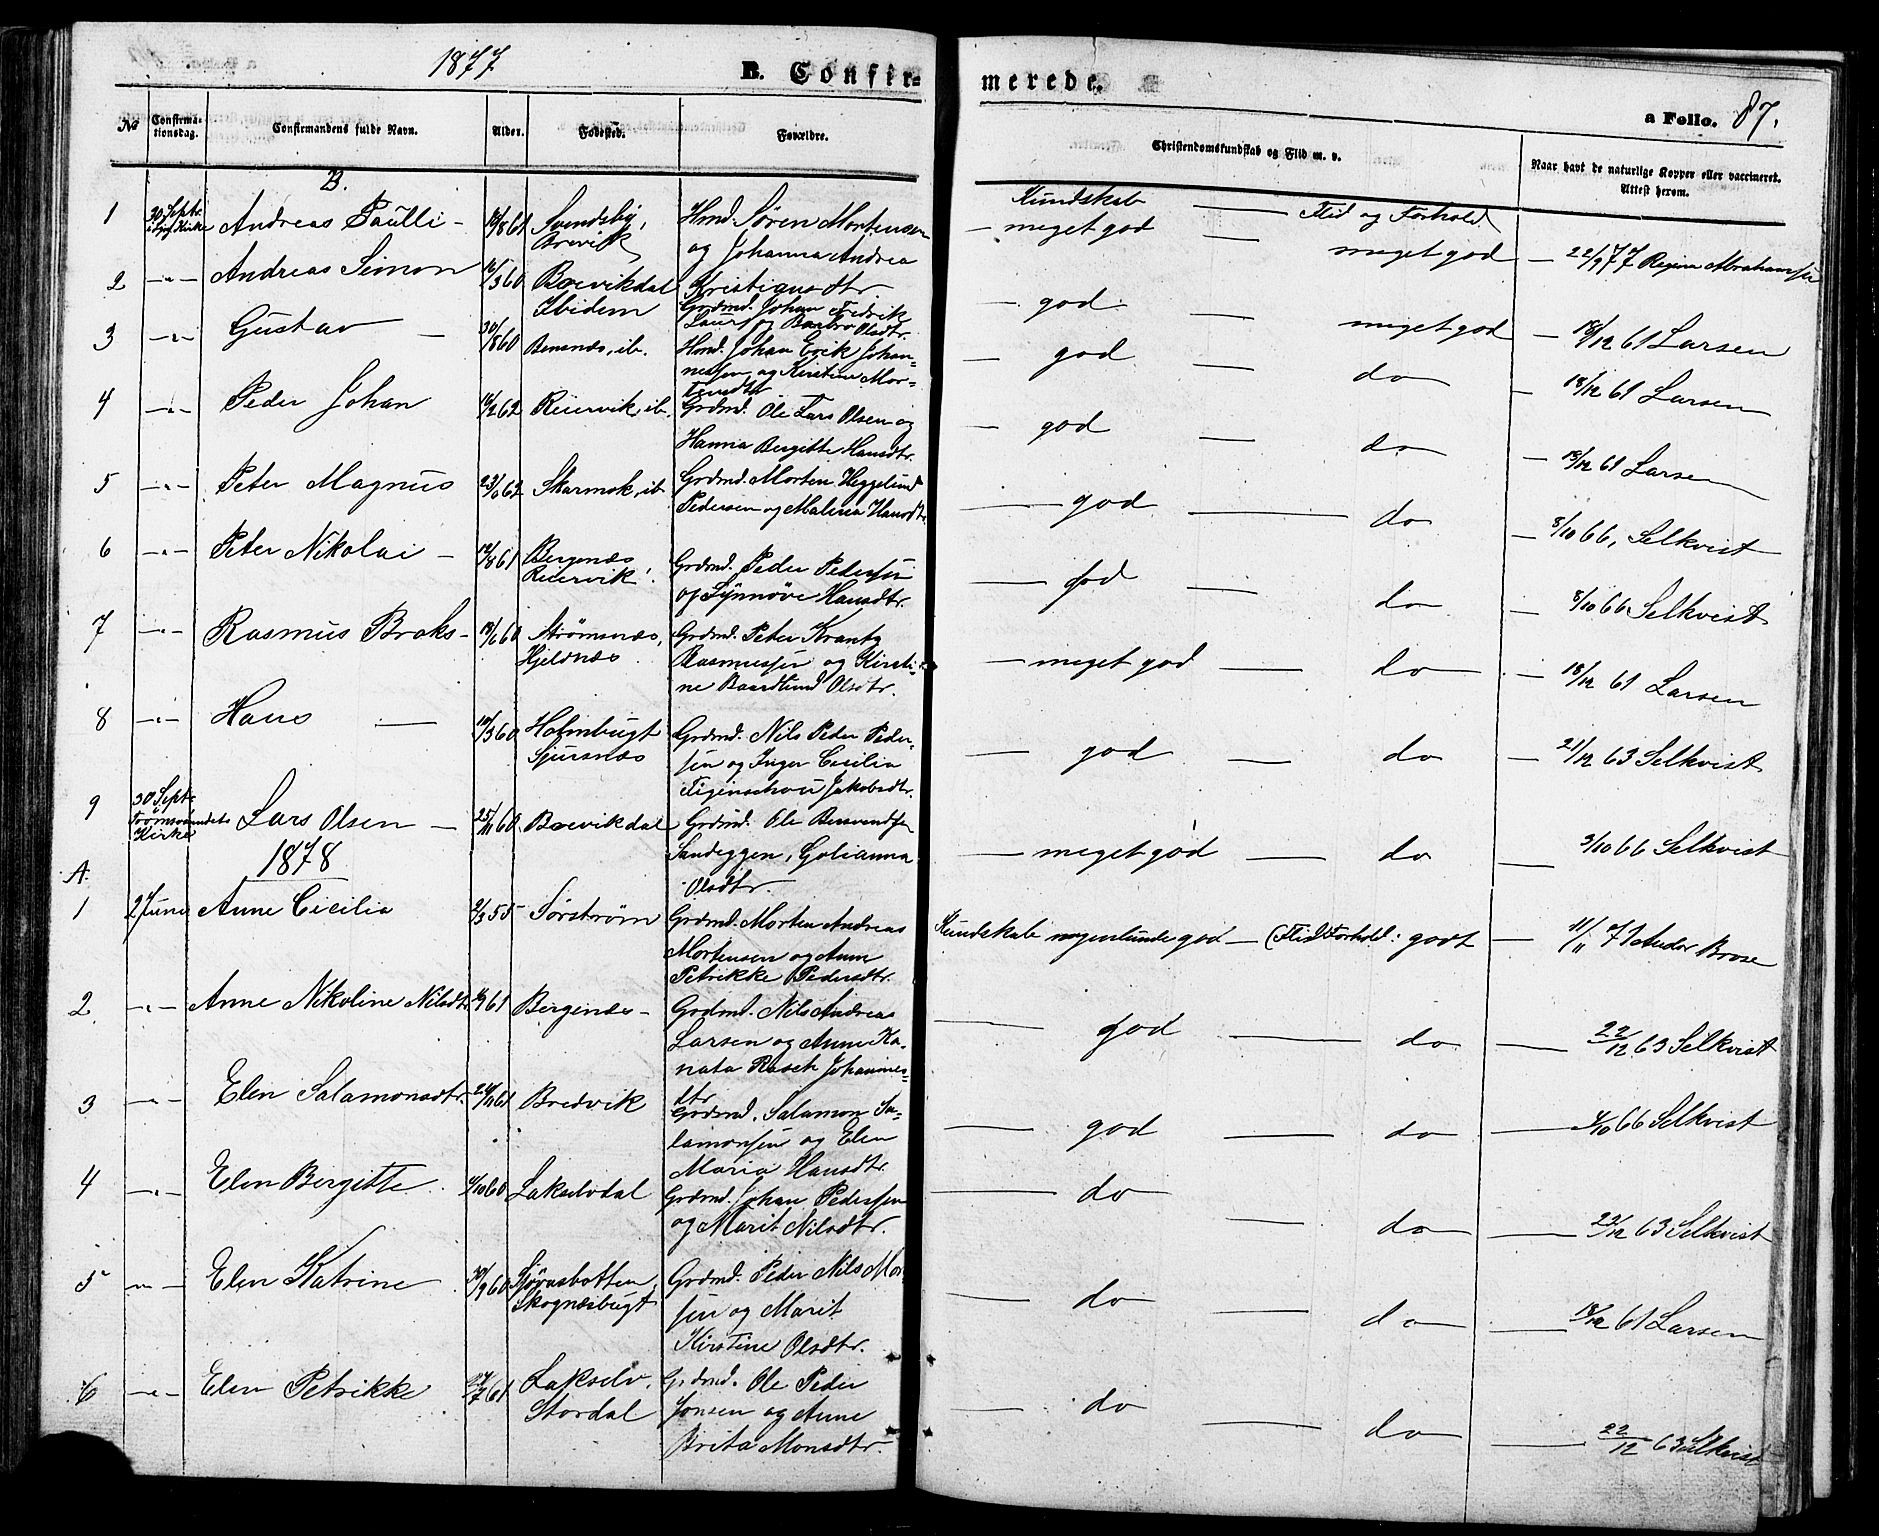 1877
B. Confir-
merede.
a Folio. 87.
No
Confirma-
tionsdag.
Confirmandens fulde Navn.
Alder.
Fødested.
Forældre.
Christendomskundskab og Flid m. v.
Naar havt de naturlige Kopper eller vaccineret.
Attest herom.
B.
1 30 Septr. Andreas Paulli - 61 Svendsby, Hmd. Søren Mortensen
Brevik og Johanna Andrea
Kristiansdtr
Kundskab meget god — Flid og Forhold meget god — 22/9 77 Regine Abrahamsen
2 -"- Andreas Simon 60 Brevikdal Grdmd. Johan Fredrik
Ibidem Baabro Olsdtr.
- god. — meget god — 18/12 61 Larsen
3 -"- Gustav — 30/8 60 Bensnæs, ib. Hmd. Johan Erik Johan-
nessen og Kirstine Mor-
tensdtr
— god — do — 18/12 61 Larsen
4 -"- Peder Johan 62 Reiervik, ib. Grdmd. Ole Lars Olsen og
Hanna Bergitte Hansdtr.
- god — do — 61 Larsen
5 -"- Peter Magnus 62 Skarmok, ib. Grdmd. Morten Heggelund
Pedersen og Malena Hansdtr
— god — do — 8/10 66, Selkvist
6 -"- Peter Nikolai - 61 Bergenæs Grdmd. Peder Pedersen
Reiervik og Synnøve Hansdtr.
— god — do — 8/10 66 Selkvist
7 -"- Rasmus Broks- 60 Strømsnæs, Grdmd. Peter Krantz
Hjeldnæs. Rasmussen og Kirsti-
ne Baardlund Olsdtr.
— meget god — do — 18/12 61 Larsen
8 -"- Hans — 60 Holmbugt Grdmd. Nils Peder Peder-
Sjursnæs sen og Inger Cecilia
Figenschou Jakobsdtr.
— god — do — 21/12 63 Selkvist
9 30 Septr Tromsøsundets Kirke Lars Olsen — 25/11 60 Brevikdal Grdmd. Ole Berntsen
Sandeggen, Golianna
Olsdtr.
— meget god — do — 3/10 66 Selkvist
A.
1878
1 2 Juni Anne Cicilia 2/3 55 Sørstrøm Grdmd. Morten Andreas
Mortensen og Anne
Petrikke Pedersdtr.
Kundskab nogenlunde god — (Flid Forhold: godt — 11/11 71 Ander Brose
2 -"- Anne Nikoline Nilsdtr. 61 Bergenæs - Grdmd. Nils Andreas
Larsen og Anne Re-
nata Rasch Johannes-
dtr
— god — do — 22/12 63 Selkvist
3 -"- Elen Salamonsdtr. 61 Bredvik Grdmd. Salamon Sa-
lamonsen og Elen
Maria Hansdtr.
— god — do — 66 Selkvist
4 -"- Elen Bergitte. 60 Lakselvdal Grdmd. Johan Pedersen
og Marit Nilsdtr.
— do — do — 22/12 63 Selkvist
5 -"- Elen Katrine 30/9 60 Sjøvasbotten, Grdmd. Peder Nils Mor-
Skognæsbugt sen og Marit
Kirstine Olsdtr.
— do — do — 18/12 61 Larsen
6 -"- Elen Petrikke 61 Lakselv, Grdmd. Ole Peder
Stordal Jonsen og Anne
Brita Monsdtr.
— do — do — 22/12 63 Selkvist